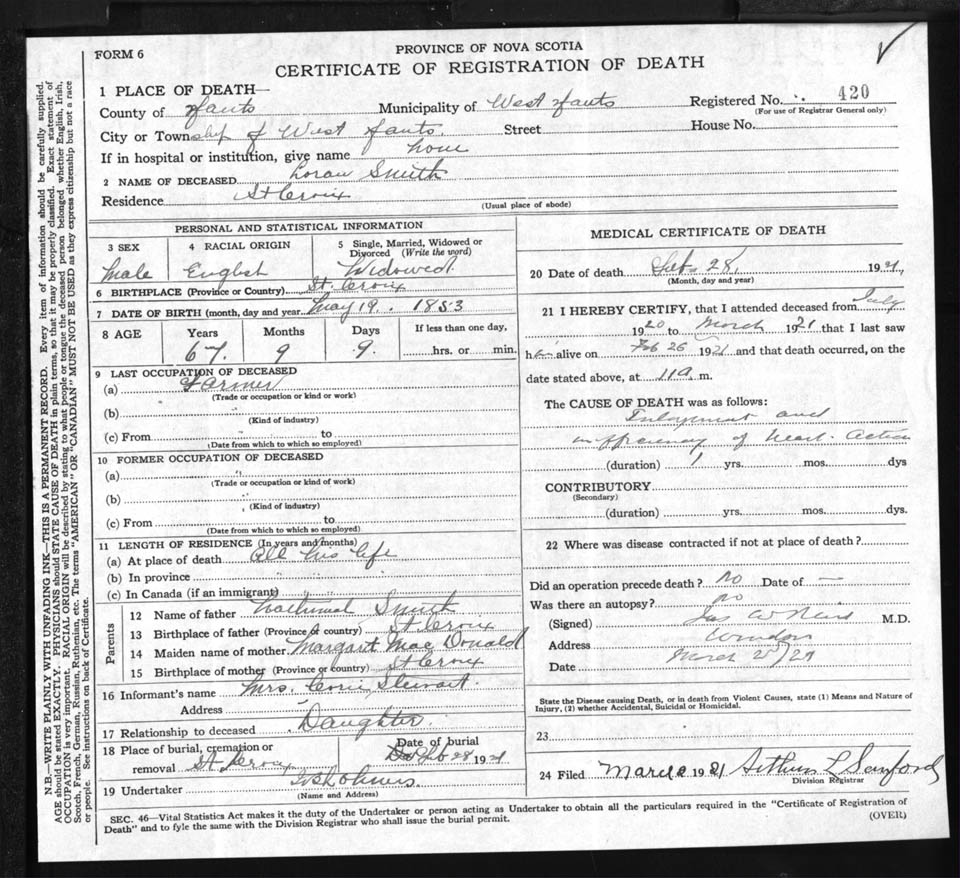 FORM 6
PROVINCE OF NOVA SCOTIA
CERTIFICATE OF REGISTRATION OF DEATH
1 PLACE OF DEATH—
County of Hants Municipality of West Hants Registered No. 420
(For use of Registrar General only)
City or Township of West Hants Street House No.
If in hospital or institution, give name
2 NAME OF DECEASED Loran Smith
Residence St Croix
(Usual place of abode)
PERSONAL AND STATISTICAL INFORMATION
3 SEX 4 RACIAL ORIGIN 5 Single, Married, Widowed or Divorced (Write the word)
Male English Widowed
6 BIRTHPLACE (Province or Country) St. Croix
7 DATE OF BIRTH (month, day and year May 19. 1853
8 AGE Years Months Days If less than one day,
67. 9 9. hrs. or min.
9 LAST OCCUPATION OF DECEASED
(a) Farmer
(Trade or occupation or kind or work)
(b)
(Kind of industry)
(c) From to
(Date from which to which so employed)
10 FORMER OCCUPATION OF DECEASED
(a)
(Trade or occupation or kind of work)
(b)
(Kind of industry)
(c) From to
(Date from which to which so employed)
11 LENGTH OF RESIDENCE (In years and months)
(a) At place of death All his life
(b) In province
(c) In Canada (if an immigrant)
Parents
12 Name of father Nathaniel Smith
13 Birthplace of father (Province or country) St Croix
14 Maiden name of mother Margaret Mac Donald
15 Birthplace of mother (Province or country) St Croix
16 Informant's name Mrs. Stewart.
Address
17 Relationship to deceased Daughter.
18 Place of burial, cremation or removal St Croix Date of burial 28 1921
19 Undertaker
(Name and Address)
MEDICAL CERTIFICATE OF DEATH
20 Date of death Feb 28, 1921,
(Month, day and year)
21 I HEREBY CERTIFY, that I attended deceased from July
1920 to March 1921 that I last saw
him alive on Feb 26 1921 and that death occurred, on the
date stated above, at 11 a. m.
The CAUSE OF DEATH was as follows:
Enlargement and
insufficiency of Heart. Action
(duration) 1 yrs. mos. dys
CONTRIBUTORY
(Secondary)
(duration) yrs. mos. dys.
22 Where was disease contracted if not at place of death?
Did an operation precede death? No Date of —
Was there an autopsy? no
(Signed) Jas W Reid M.D.
Address Windsor
Date March 25/21
State the Disease causing Death, or in death from Violent Causes, state (1) Means and Nature of
Injury, (2) whether Accidental, Suicidal or Homicidal.
23
24 Filed March 1921 Arthur L Sanford
Division Registrar
SEC. 46—Vital Statistics Act makes it the duty of the Undertaker or person acting as Undertaker to obtain all the particulars required in the "Certificate of Registration of
Death" and to fyle the same with the Division Registrar who shall issue the burial permit.
(OVER)
N.B.—WRITE PLAINLY WITH UNFADING INK—THIS IS A PERMANENT RECORD. Every item of information should be carefully supplied.
AGE should be stated EXACTLY. PHYSICIANS should STATE CAUSE OF DEATH in plain terms, so that it may be properly classified. Exact statement of
OCCUPATION is very important. RACIAL ORIGIN will be described by stating to what people or tongue the deceased person belonged whether English, Irish,
Scotch, French, German, Russian, Ruthenian, etc. The terms "AMERICAN" OR "CANADIAN" MUST NOT BE USED as they express citizenship but not a race
or people. See instructions on back of Certificate.